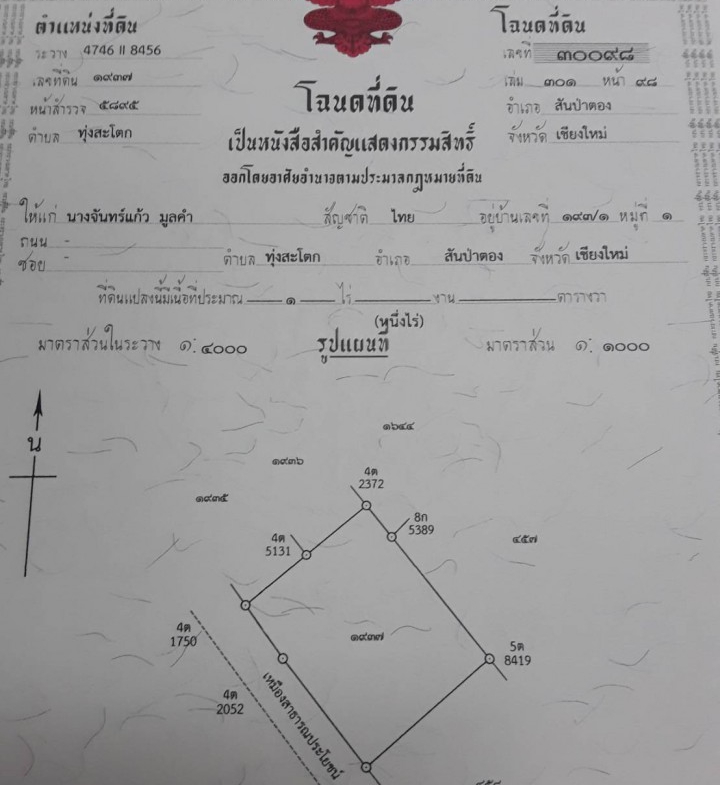 ตำแหน่งที่ดิน
ระวาง 4746 II 8456
เลขที่ดิน ๑๙๓๗
หน้าสำรวจ ๕๘๙๕
ตำบล ทุ่งสะโตก
โฉนดที่ดิน
เลขที่ ๓๐๐๙๘
เล่ม ๓๐๑ หน้า ๙๘
อำเภอ สันป่าตอง
จังหวัด เชียงใหม่
โฉนดที่ดิน
เป็นหนังสือสำคัญแสดงกรรมสิทธิ์
ออกโดยอาศัยอำนาจตามประมวลกฎหมายที่ดิน
ให้แก่ นางจันทร์แก้ว มูลคำ สัญชาติ ไทย อยู่บ้านเลขที่ ๑๙๓/๑ หมู่ที่ ๑
ถนน -
ซอย - ตำบล ทุ่งสะโตก อำเภอ สันป่าตอง จังหวัด เชียงใหม่
ที่ดินแปลงนี้มีเนื้อที่ประมาณ ๑ ไร่ งาน ตารางวา
(หนึ่งไร่)
มาตราส่วนในระวาง ๑: ๔๐๐๐ รูปแผนที่ มาตราส่วน ๑: ๑๐๐๐
น
๑๖๔๔
๑๙๓๖
4ต
2372
๑๙๓๕
8ก
5389
4ต
5131
๔๕๗
4ต
1750
๑๙๓๗
5ต
8419
4ต
2052
เหมืองสาธารณประโยชน์